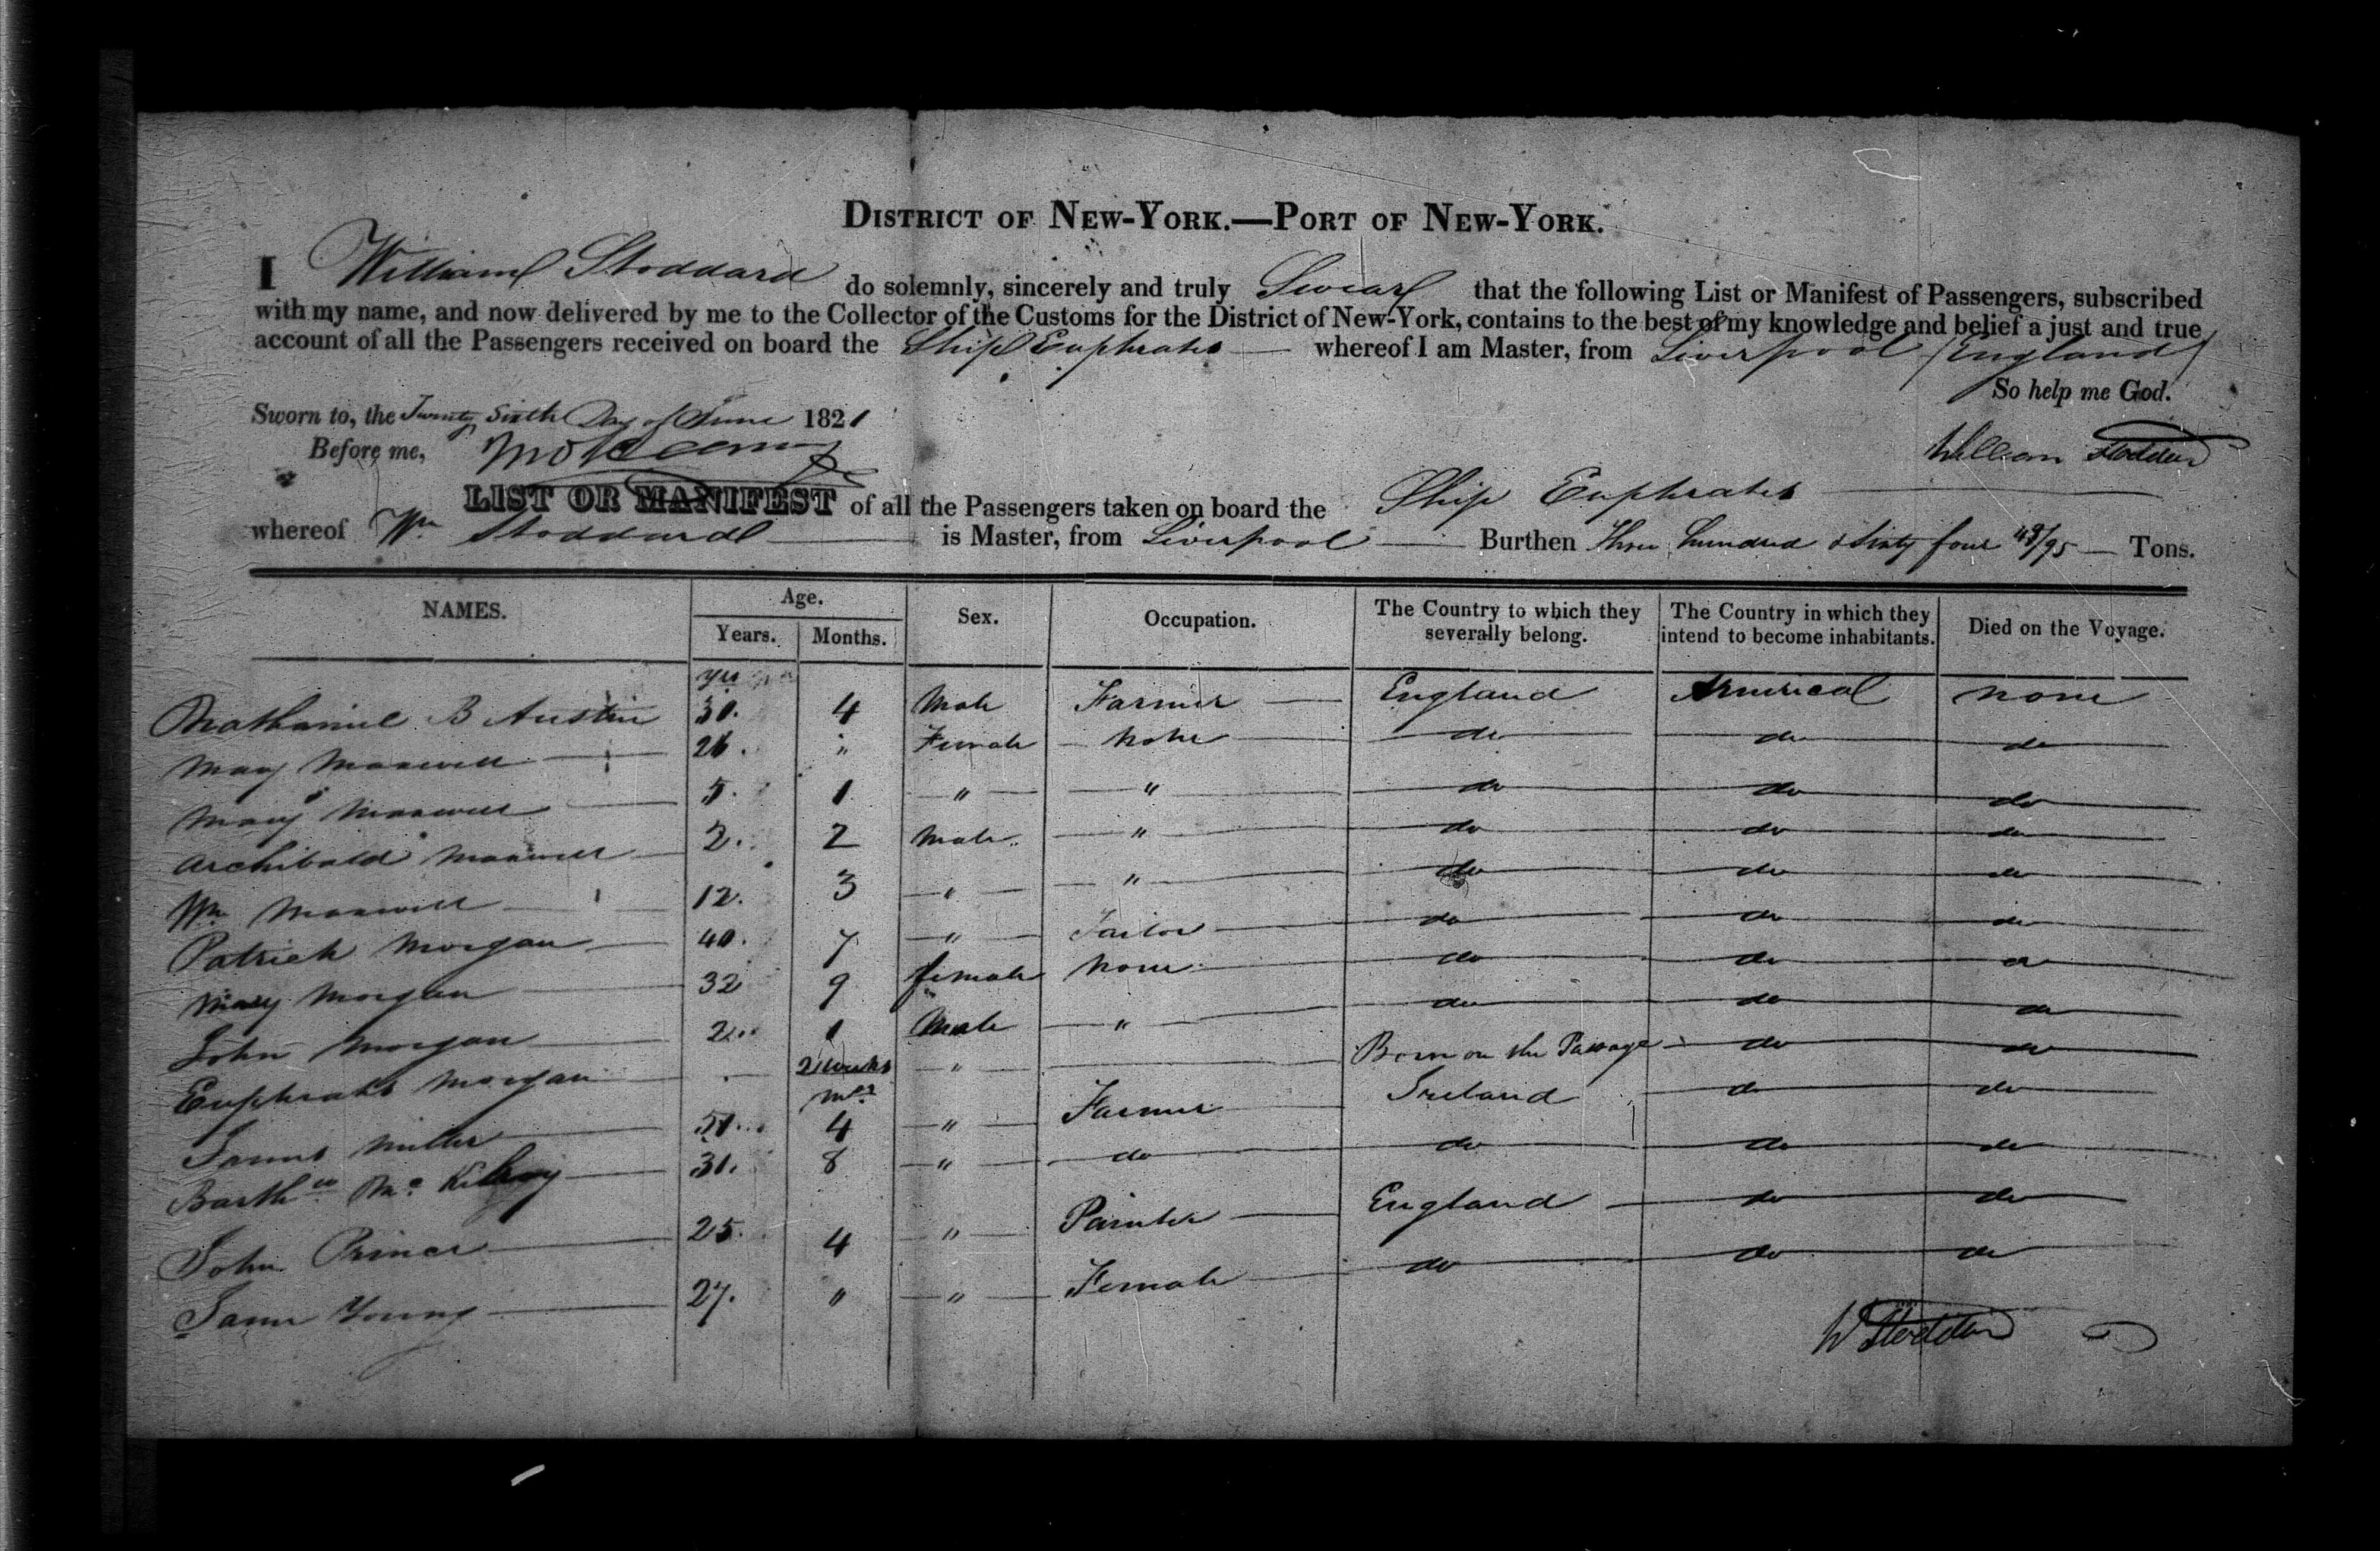 DISTRICT OF NEW-YORK.—PORT OF NEW-YORK.
I William Stoddard do solemnly, sincerely and truly Swear that the following List or Manifest of Passengers, subscribed
with my name, and now delivered by me to the Collector of the Customs for the District of New-York, contains to the best of my knowledge and belief a just and true
account of all the Passengers received on board the Ship Euphrates — whereof I am Master, from Liverpool (England)
So help me God.
Sworn to, the Twenty Sixth Day of June 1821
Before me,
William Stoddard
LIST OR MANIFEST of all the Passengers taken on board the Ship Euphrates
whereof Wm Stoddard — is Master, from Liverpool — Burthen Three hundred & Sixty four 48/95 — Tons.
NAMES. Age. Sex. Occupation. The Country to which they severally belong. The Country in which they intend to become inhabitants. Died on the Voyage.
Years. Months.
yrs
Nathaniel B Austin 30. 4 Male Farmer — England America none
Mary Maxwell 26. " Female none do do do
Mary Maxwell 5. 1 " " do do do
Archibald Maxwell 2. 2 Male " do do do
Wm Maxwell 12. 3 " " do do do
Patrick Morgan 40. 7 " Tailor do do do
Mary Morgan 32 9 female none do do do
John Morgan 2. 1 Male " do do do
Euphrates Morgan . 2 weeks " Born on the Passage do do
ms
James Miller 51. 4 " Farmer Ireland do do
Barthw Mc 31. 8 " do do do do
John Prince 25. 4 " Painter England do do
Jane Young 27. " " Female do do do
W Stoddard